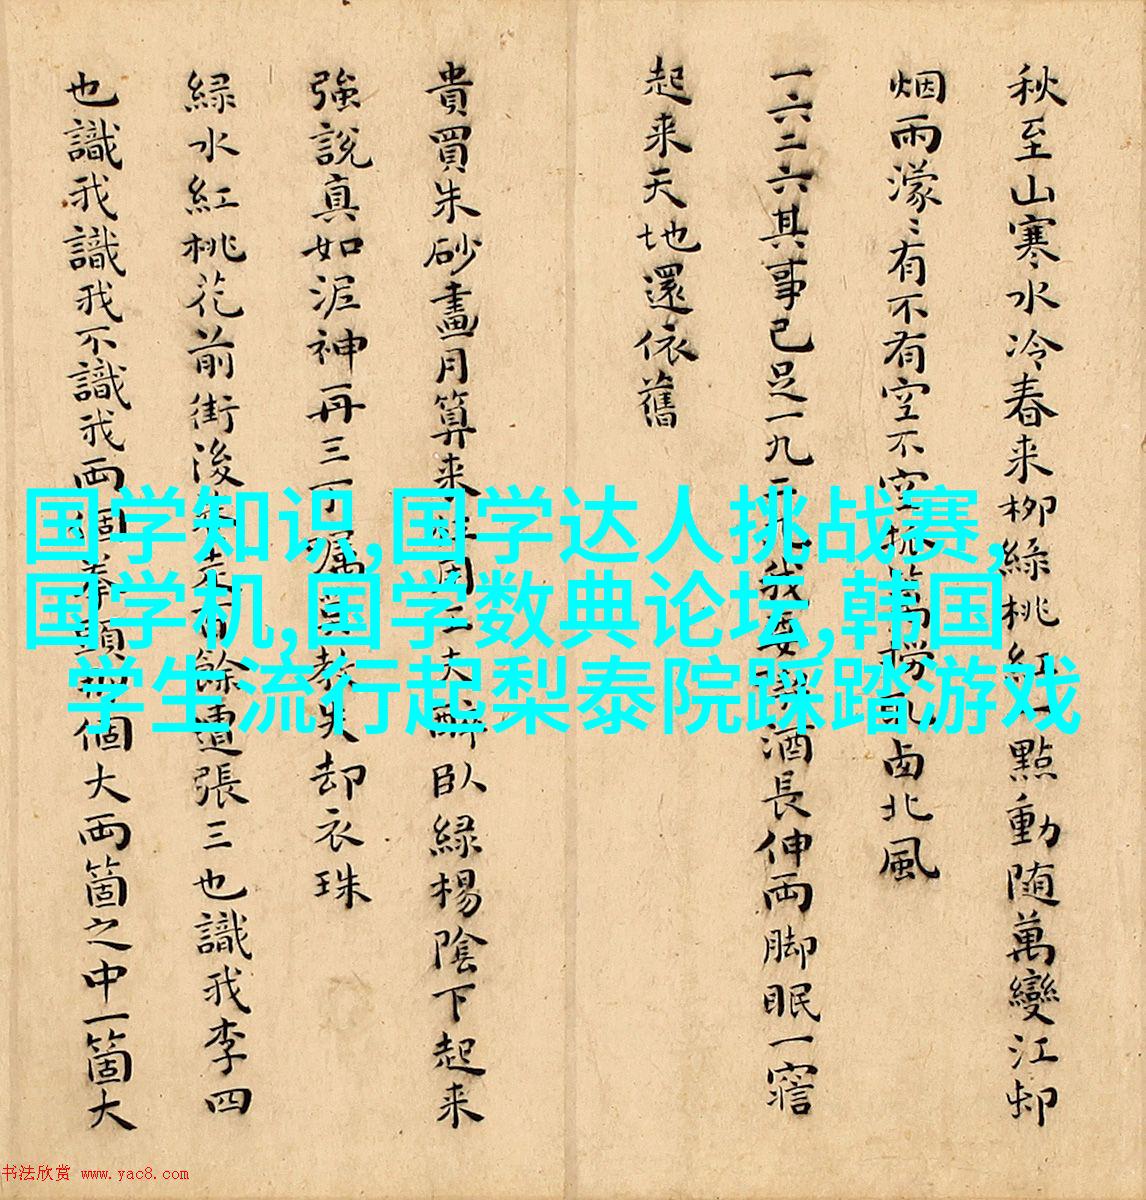 秋至山寒水冷春来柳綠桃紅一點動随萬變江邨
烟雨濛〻有不有空不空
北風
一六二六其事已足一九
酒長伸両脚眠一寤
起来天地還依舊
貴買朱砂畫月算来
醉臥緑楊陰下起来
強說真如泥神再三丁囑
教失却衣珠
緑水紅桃花前街後
餘遭張三也識我李四
也識我識我不識我両箇拳頭
個大両箇之中一箇大
国学知识,国学达人挑战赛,
国学机,国学数典论坛,韩国
学生流行起梨泰院踩踏游戏
书法欣赏 www.yac8.com